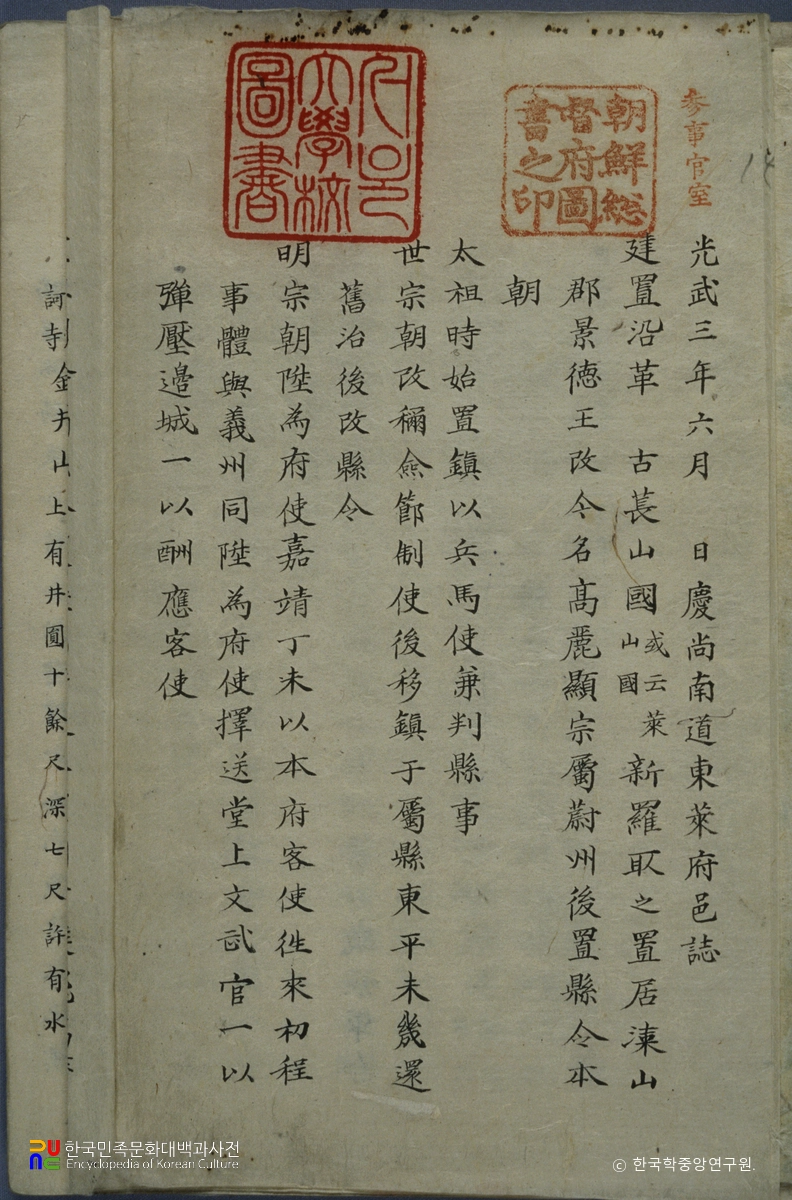 參事官室
朝鮮總
督府圖
書之印
大學校
圖書
光武三年六月 日慶尚南道東萊府邑誌
建置沿革 古萇山國或云萊山國新羅取之置居漆山
郡景德王改今名高麗顯宗屬蔚州後置縣令本
朝
太祖時始置鎭以兵馬使兼判縣事
世宗朝改稱僉節制使後移鎭于屬縣東平未幾還
舊治後改縣令
明宗朝陞為府使嘉靖丁未以本府客使徃來初程
事體與義州同陞為府使擇送堂上文武官一以
彈壓邊城一以酬應客使
山上有井圓十餘尺深七尺許有水
한국민족문화대백과사전
Encyclopedia of Korean Culture
© 한국학중앙연구원.